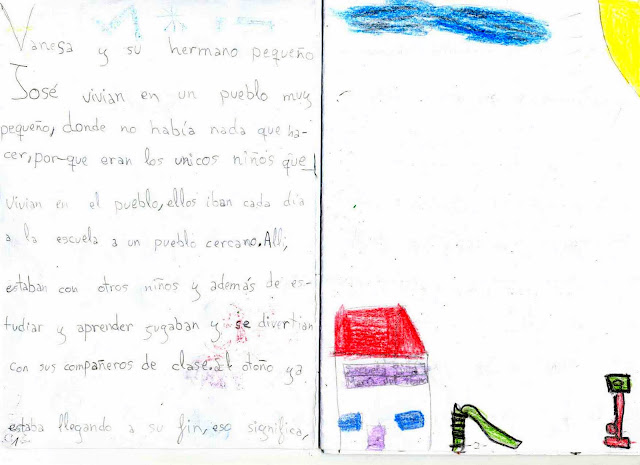 Vanesa y su hermano pequeño
José vivian en un pueblo muy
pequeño, donde no había nada que ha-
cer, por-que eran los unicos niños que
vivian en el pueblo, ellos iban cada dia
a la escuela a un pueblo cercano. Alli,
estaban con otros niños y además de es-
tudiar y aprender jugaban y se divertian
con sus compañeros de clase. El otoño ya
estaba llegando a su fin, eso significa,
-2-